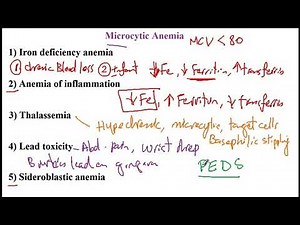 Microcytic Anemia
MCV < 80
1) Iron deficiency anemia
① chronic Blood loss ② infant ↓Fe, ↓Ferritin, ↑transferrin
2) Anemia of inflammation
↓Fe, ↑Ferritin, ↓transferrin
3) Thalassemia
Hypochromic, microcytic, target cells
Basophilic stippling
4) Lead toxicity - Abd. pain, wrist drop
Burton's lead on gingiva
PEDS
5) Sideroblastic anemia